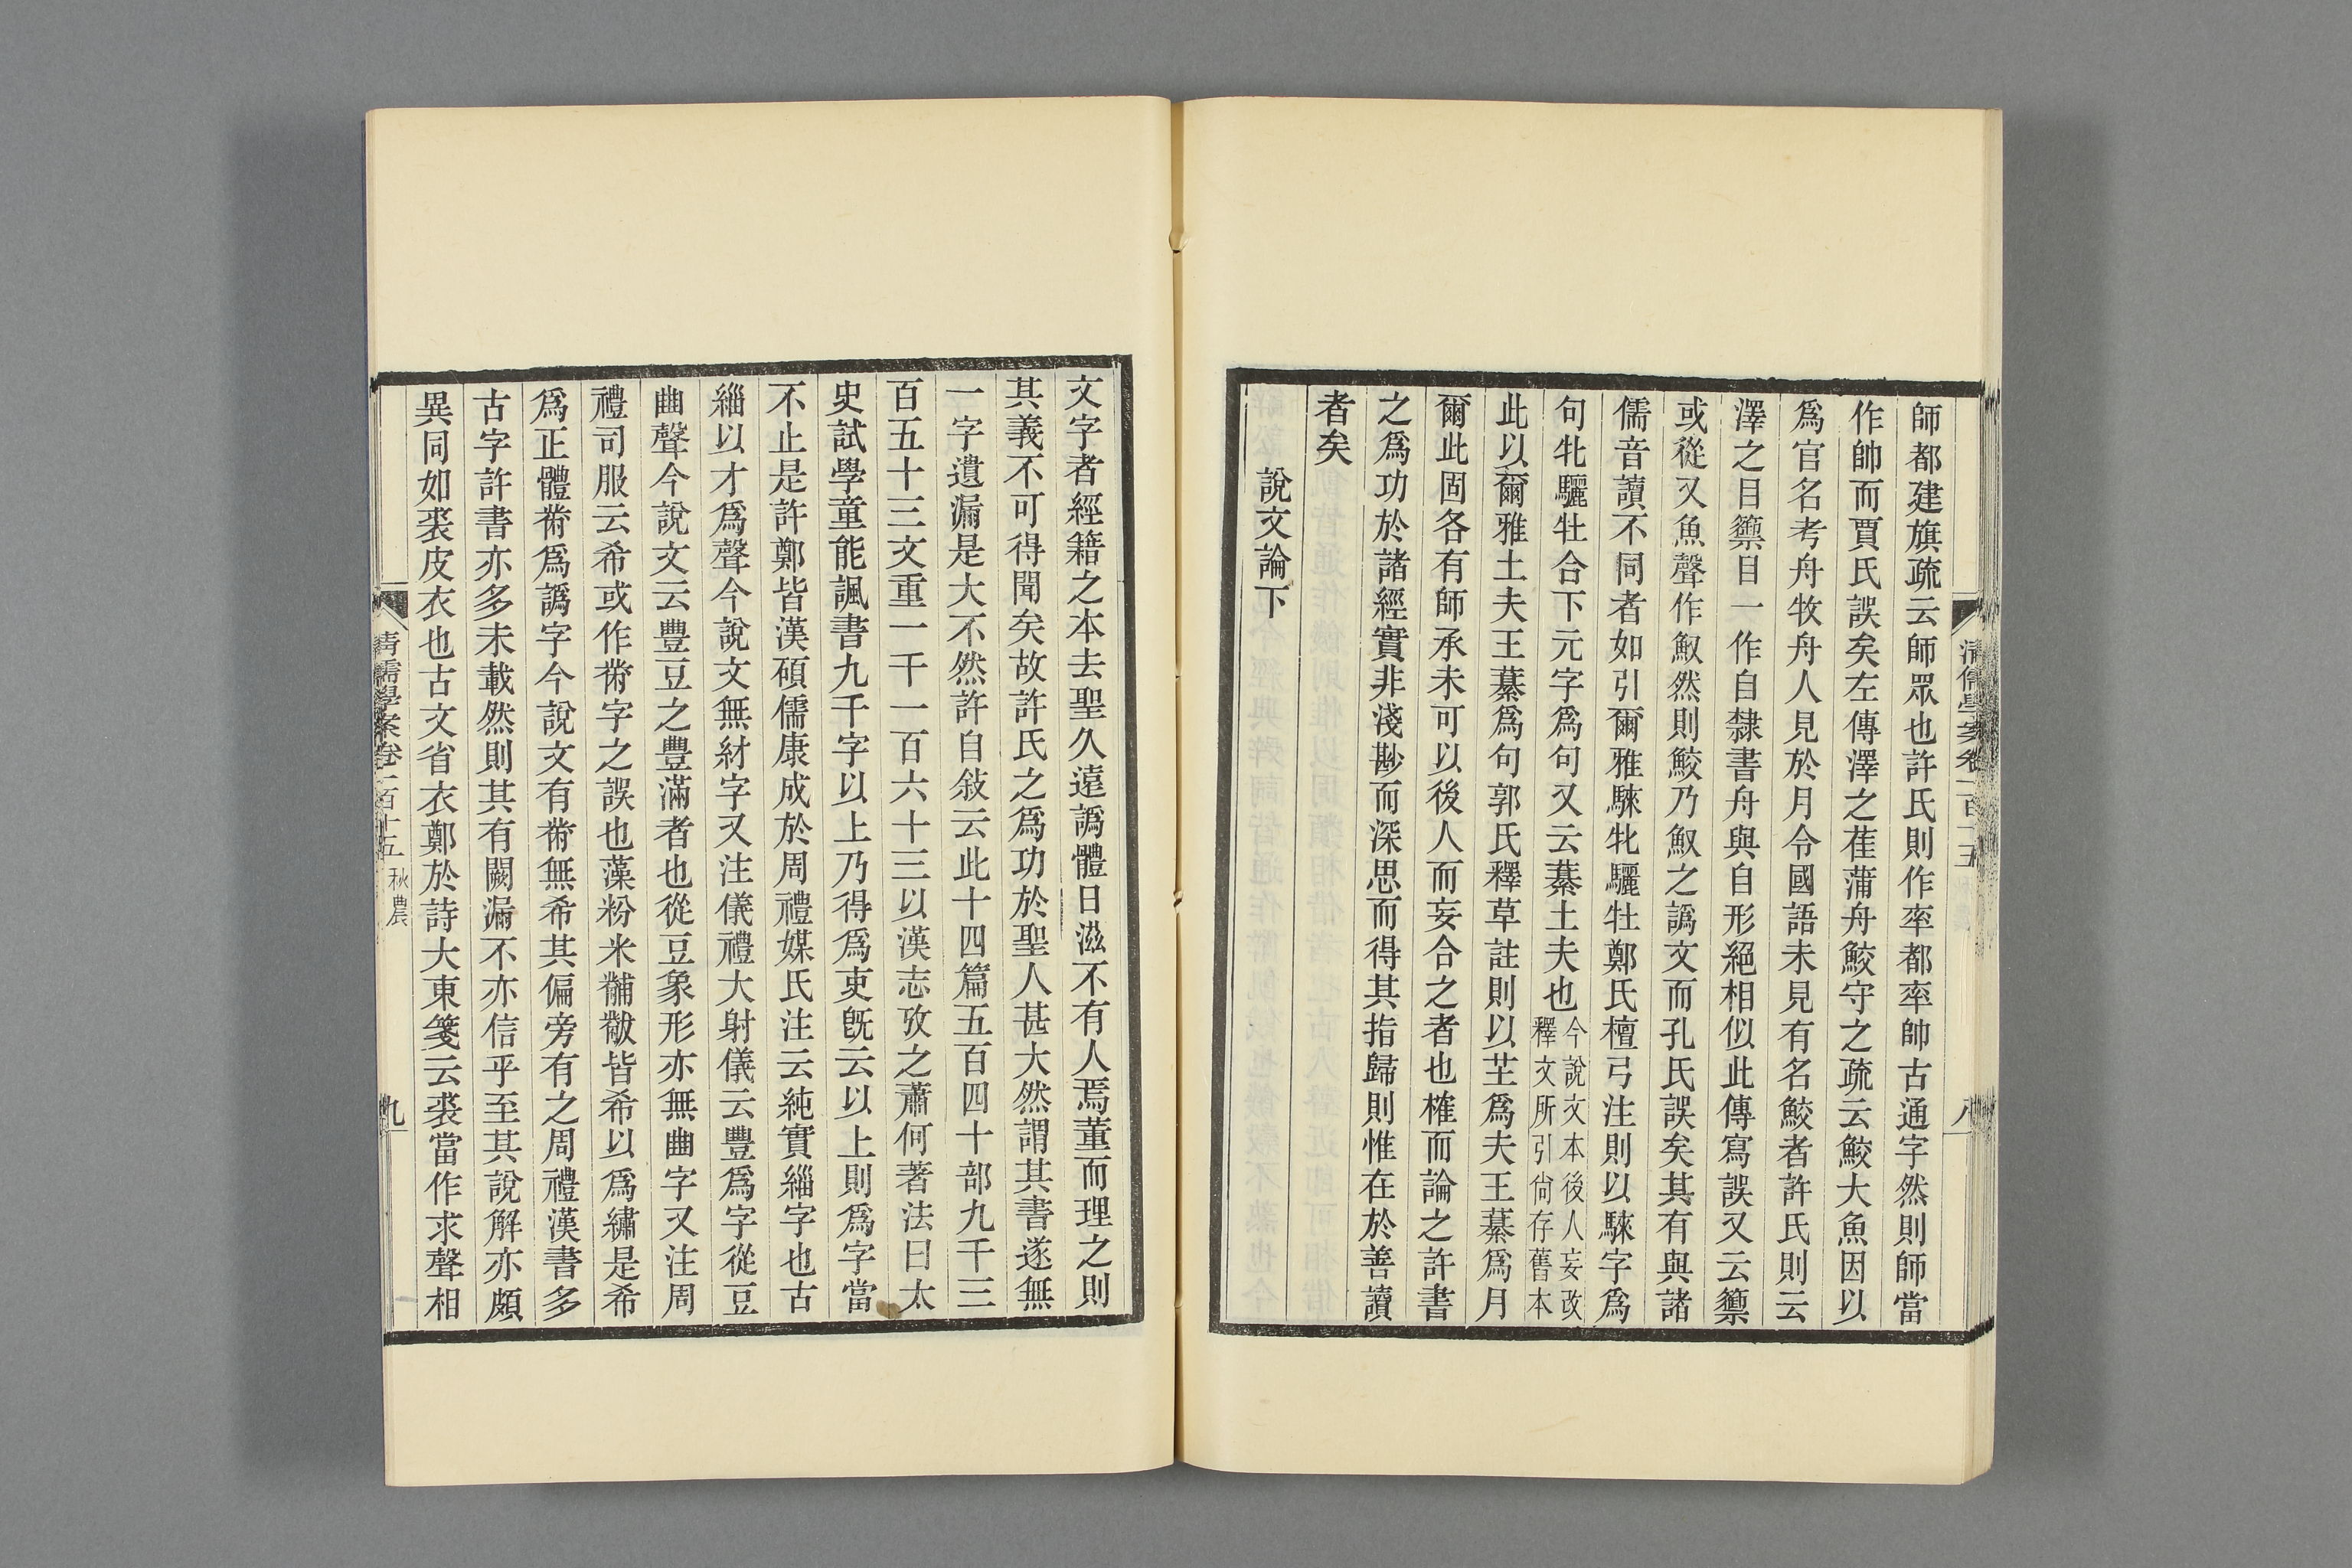 師都建旗疏云師眾也許氏則作率都率帥古通字然則師當
作帥而賈氏誤矣左傳澤之萑蒲舟鮫守之疏云鮫大魚因以
爲官名考舟牧舟人見於月令國語未見有名鮫者許氏則云
澤之目篽目一作自隸書舟與自形絕相似此傳寫誤又云篽
或從又魚聲作䰻然則鮫乃䰻之譌文而孔氏誤矣其有與諸
儒音讀不同者如引爾雅騋牝驪牡鄭氏檀弓注則以騋字爲
句牝驪牡合下元字爲句又云藄土夫也今說文本後人妄改
釋文所引尙存舊本
此以爾雅土夫王藄爲句郭氏釋草註則以芏爲夫王藄爲月
爾此固各有師承未可以後人而妄合之者也榷而論之許書
之爲功於諸經實非淺尠而深思而得其指歸則惟在於善讀
者矣
說文論下
清儒學案卷一百十五
八
文字者經籍之本去聖久遠譌體日滋不有人焉董而理之則
其義不可得聞矣故許氏之爲功於聖人甚大然謂其書遂無
一字遺漏是大不然許自敍云此十四篇五百四十部九千三
百五十三文重一千一百六十三以漢志攷之蕭何著法曰太
史試學童能諷書九千字以上乃得爲吏旣云以上則爲字當
不止是許鄭皆漢碩儒康成於周禮媒氏注云純實緇字也古
緇以才爲聲今說文無紂字又注儀禮大射儀云豐爲字從豆
𧯮聲今說文云豐豆之豐滿者也從豆象形亦無𧯮字又注周
禮司服云希或作黹字之誤也藻粉米黼黻皆希以爲繡是希
爲正體黹爲譌字今說文有黹無希其偏旁有之周禮漢書多
古字許書亦多未載然則其有闕漏不亦信乎至其說解亦頗
異同如裘皮衣也古文省衣鄭於詩大東箋云裘當作求聲相
清儒學案卷一百十五 秋農
九